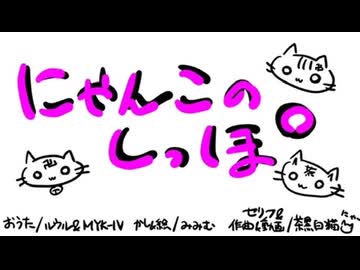 にゃんこの
しっぽ
おうた/ルウル&MYK-IV かし&絵/みみむ セリフ&作曲&動画/茶黒白猫
にゃー